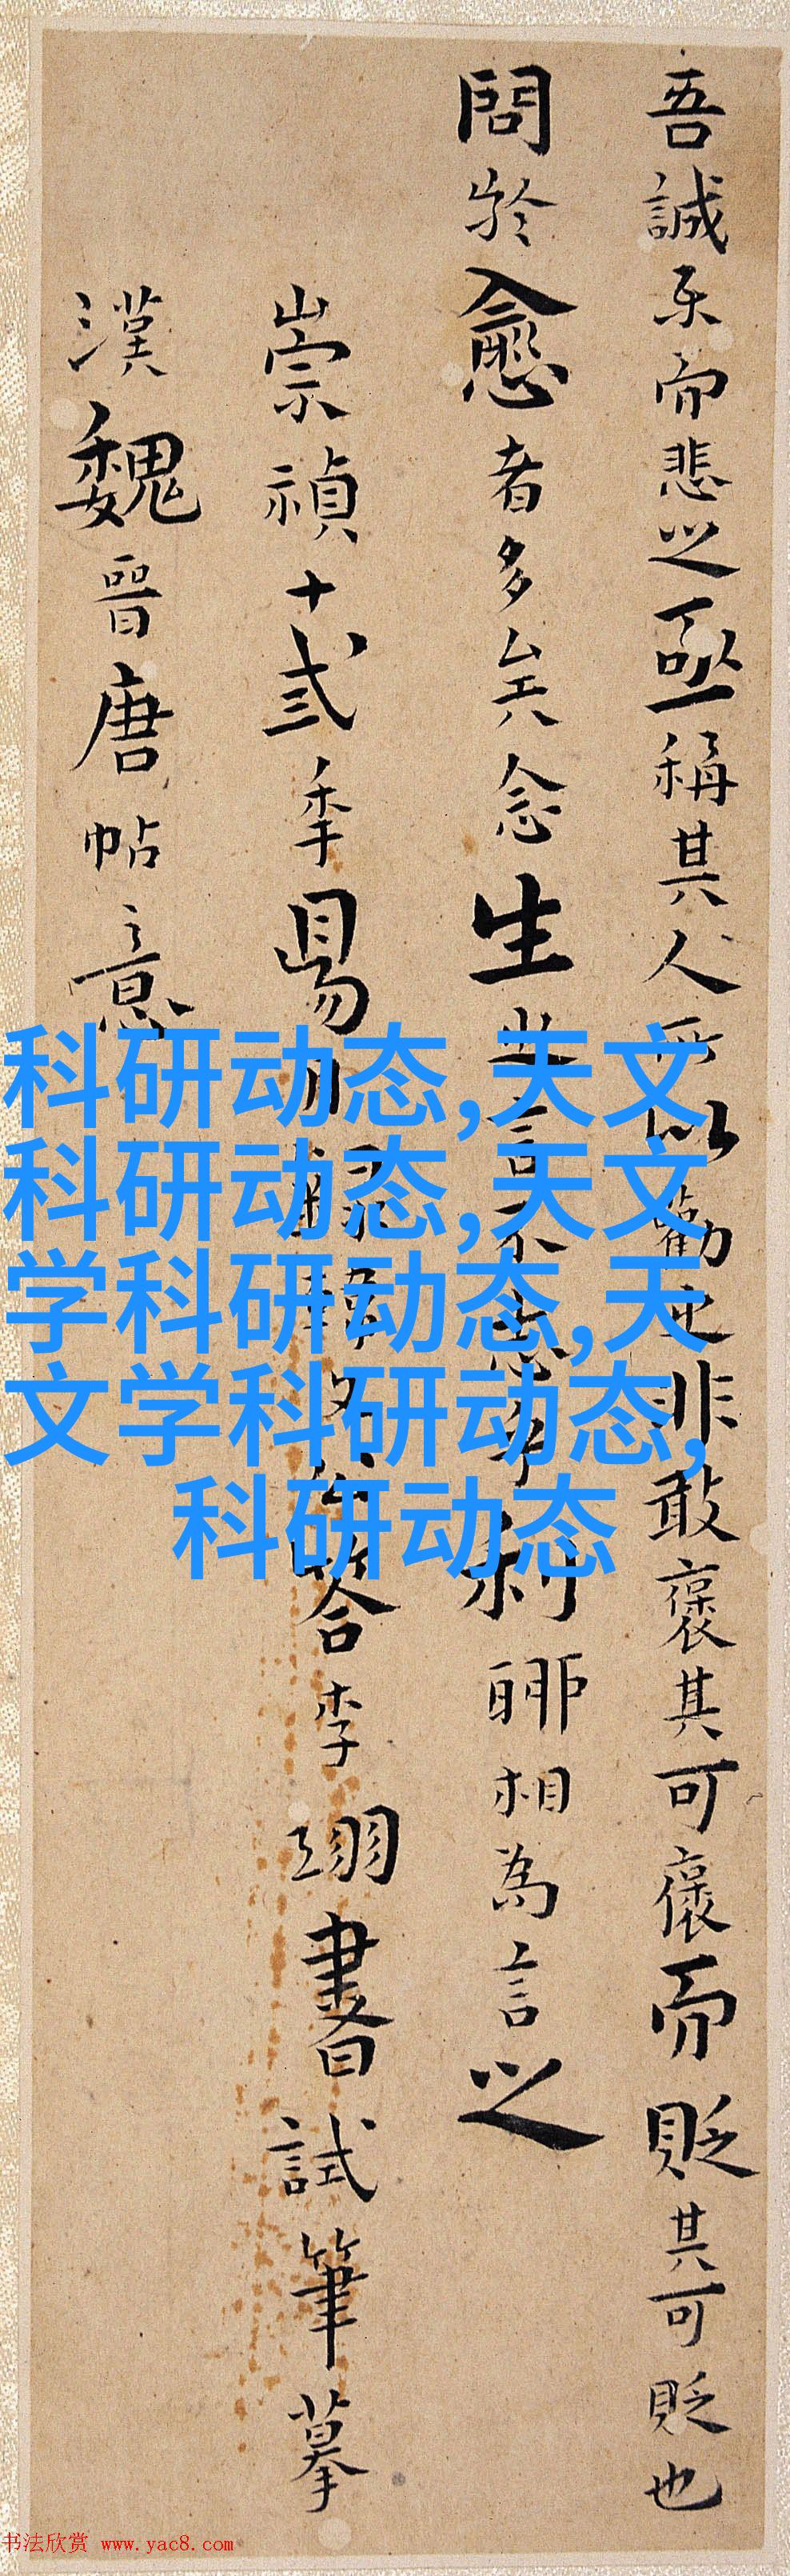 吾誠樂而悲之亟稱其人所以勸之非敢褒其可褒而貶其可貶也
問於愈者多矣念生之言不志乎利聊相為言之
崇禎十弐季易月録韓文公答李翊書試筆摹
漢魏晉唐帖意
科研动态,天文
科研动态,天文
学科研动态,天
文学科研动态,
科研动态
书法欣赏 www.yac8.com